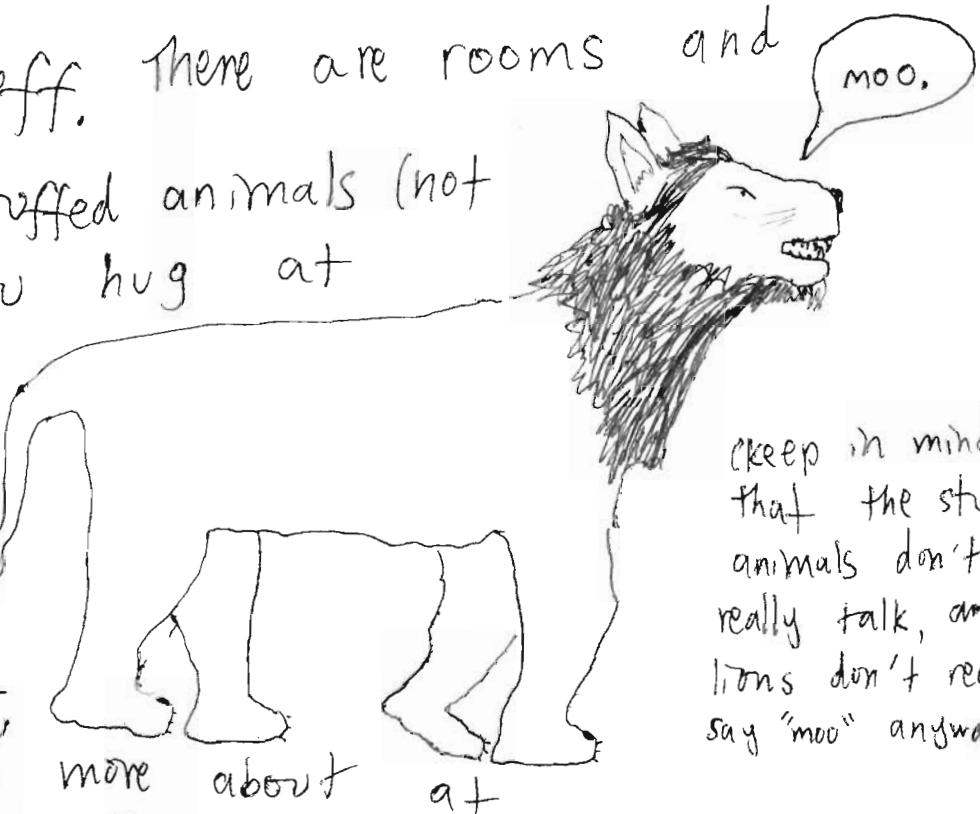 eff. There are rooms and
moo.
uffed animals (not
u hug at
(keep in mind
that the stu
animals don't
really talk, an
lions don't rea
say "moo" anywa
more about at